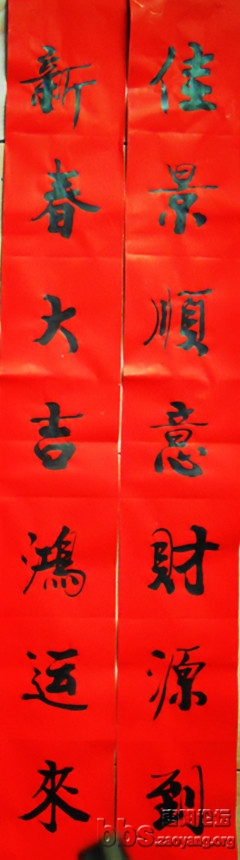 佳景順意財源到
新春大吉鴻运來
bbs.zaoyang.org